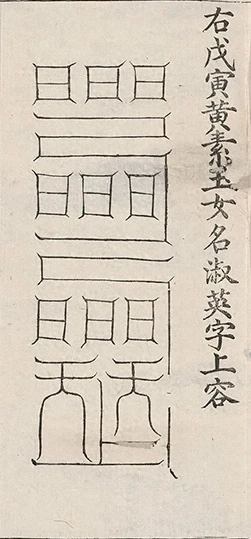 右戊寅黄素玉女名淑英字上容